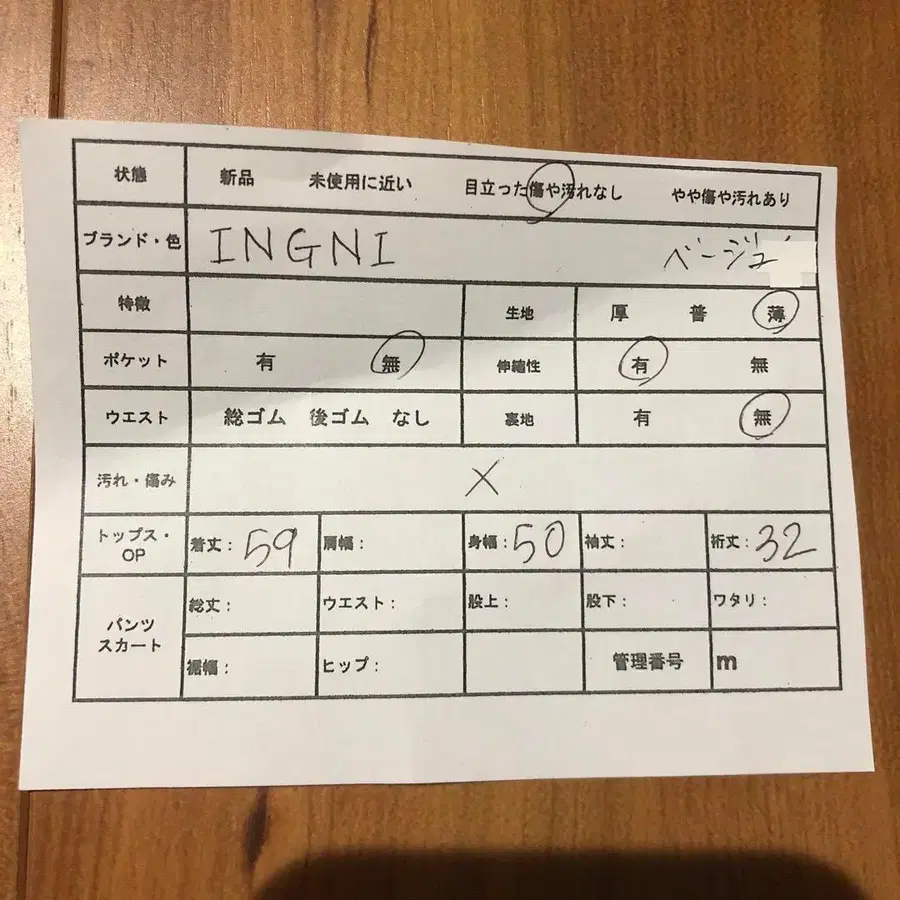 状態 新品 未使用に近い 目立った傷や汚れなし やや傷や汚れあり
ブランド・色 INGNI ベージュ
特徴 生地 厚 普 薄
ポケット 有 無 伸縮性 有 無
ウエスト 総ゴム 後ゴム なし 裏地 有 無
汚れ・傷み ×
トップス・OP 着丈：59 肩幅： 身幅：50 袖丈： 裄丈：32
パンツ スカート 総丈： ウエスト： 股上： 股下： ワタリ：
裾幅： ヒップ： 管理番号 m